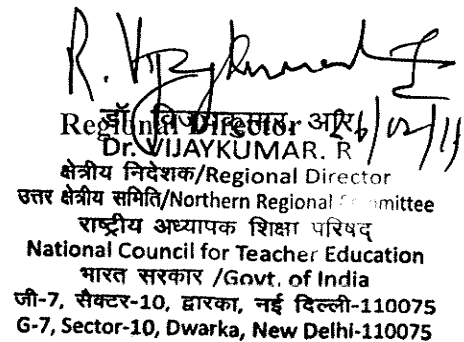 R. Vijaykumar
Regional Director
डॉ. विजयकुमार. आर
Dr. VIJAYKUMAR. R
क्षेत्रीय निदेशक/Regional Director
उत्तर क्षेत्रीय समिति/Northern Regional Committee
राष्ट्रीय अध्यापक शिक्षा परिषद्
National Council for Teacher Education
भारत सरकार /Govt. of India
जी-7, सैक्टर-10, द्वारका, नई दिल्ली-110075
G-7, Sector-10, Dwarka, New Delhi-110075